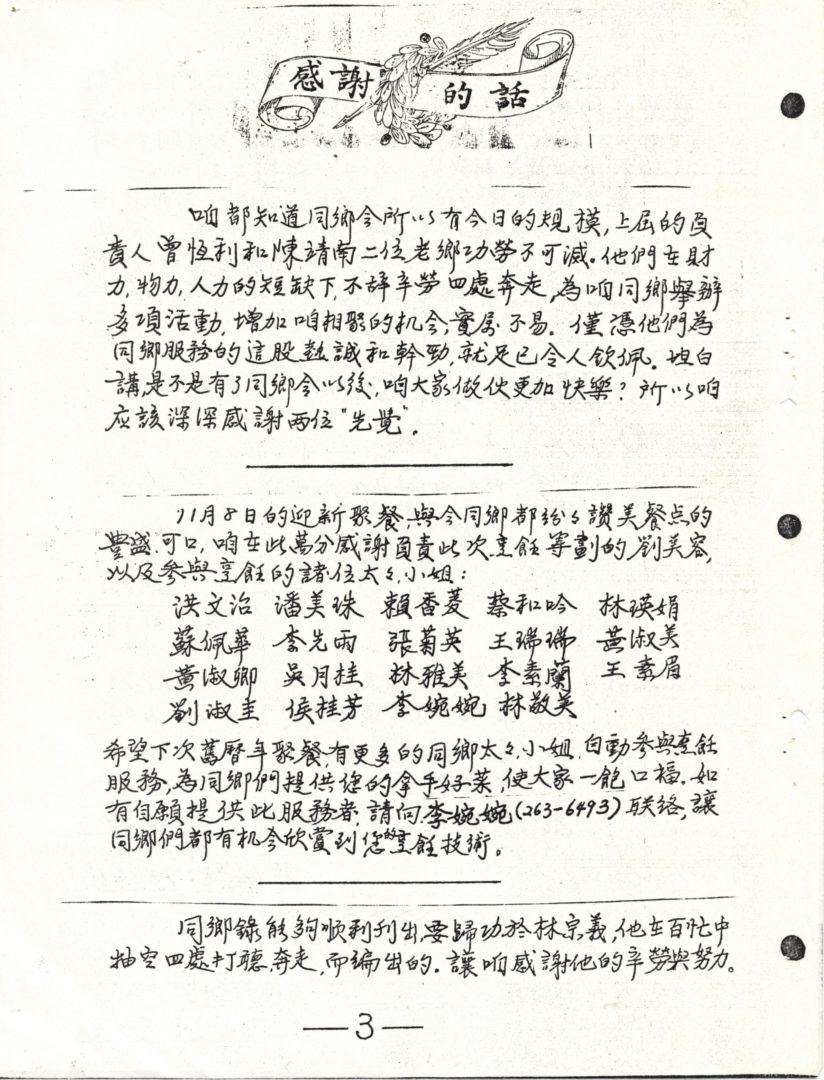 感謝的話
咱都知道同鄉会所以有今日的規模,上屆的負
責人曾恆利和陳靖南二位老鄉功勞不可滅。他們在財
力,物力,人力的短缺下,不辞辛勞四處奔走,為咱同鄉舉辦
多項活動,增加咱相聚的机会,實属不易。僅憑他們為
同鄉服務的這股熱誠和幹勁,就足已令人欽佩。坦白
講,是不是有了同鄉会以後,咱大家做伙更加快樂?所以咱
应該深深感謝兩位"先覺"。
11月8日的迎新聚餐,與会同鄉都紛々讚美餐点的
豐盛可口,咱在此萬分感謝負責此次烹飪籌劃的劉美容,
以及參與烹飪的諸位太々小姐:
洪文治 潘美珠 賴香菱 蔡和吟 林瑛娟
蘇佩華 李先雨 張菊英 王瑞瑞 黃淑美
黃淑卿 吳月桂 林雅美 李素蘭 王素眉
劉淑圭 侯桂芳 李婉婉 林敬美
希望下次舊曆年聚餐,有更多的同鄉太々小姐,自動參與烹飪
服務,為同鄉們提供您的拿手好菜,使大家一飽口福.如
有自願提供此服務者,請向李婉婉(263-6493)联絡,讓
同鄉們都有机会欣賞到您的烹飪技術。
同鄉錄能夠順利刊出,要歸功於林宗義,他在百忙中
抽空四處打聽,奔走,而編出的.讓咱感謝他的辛勞與努力。
—3—